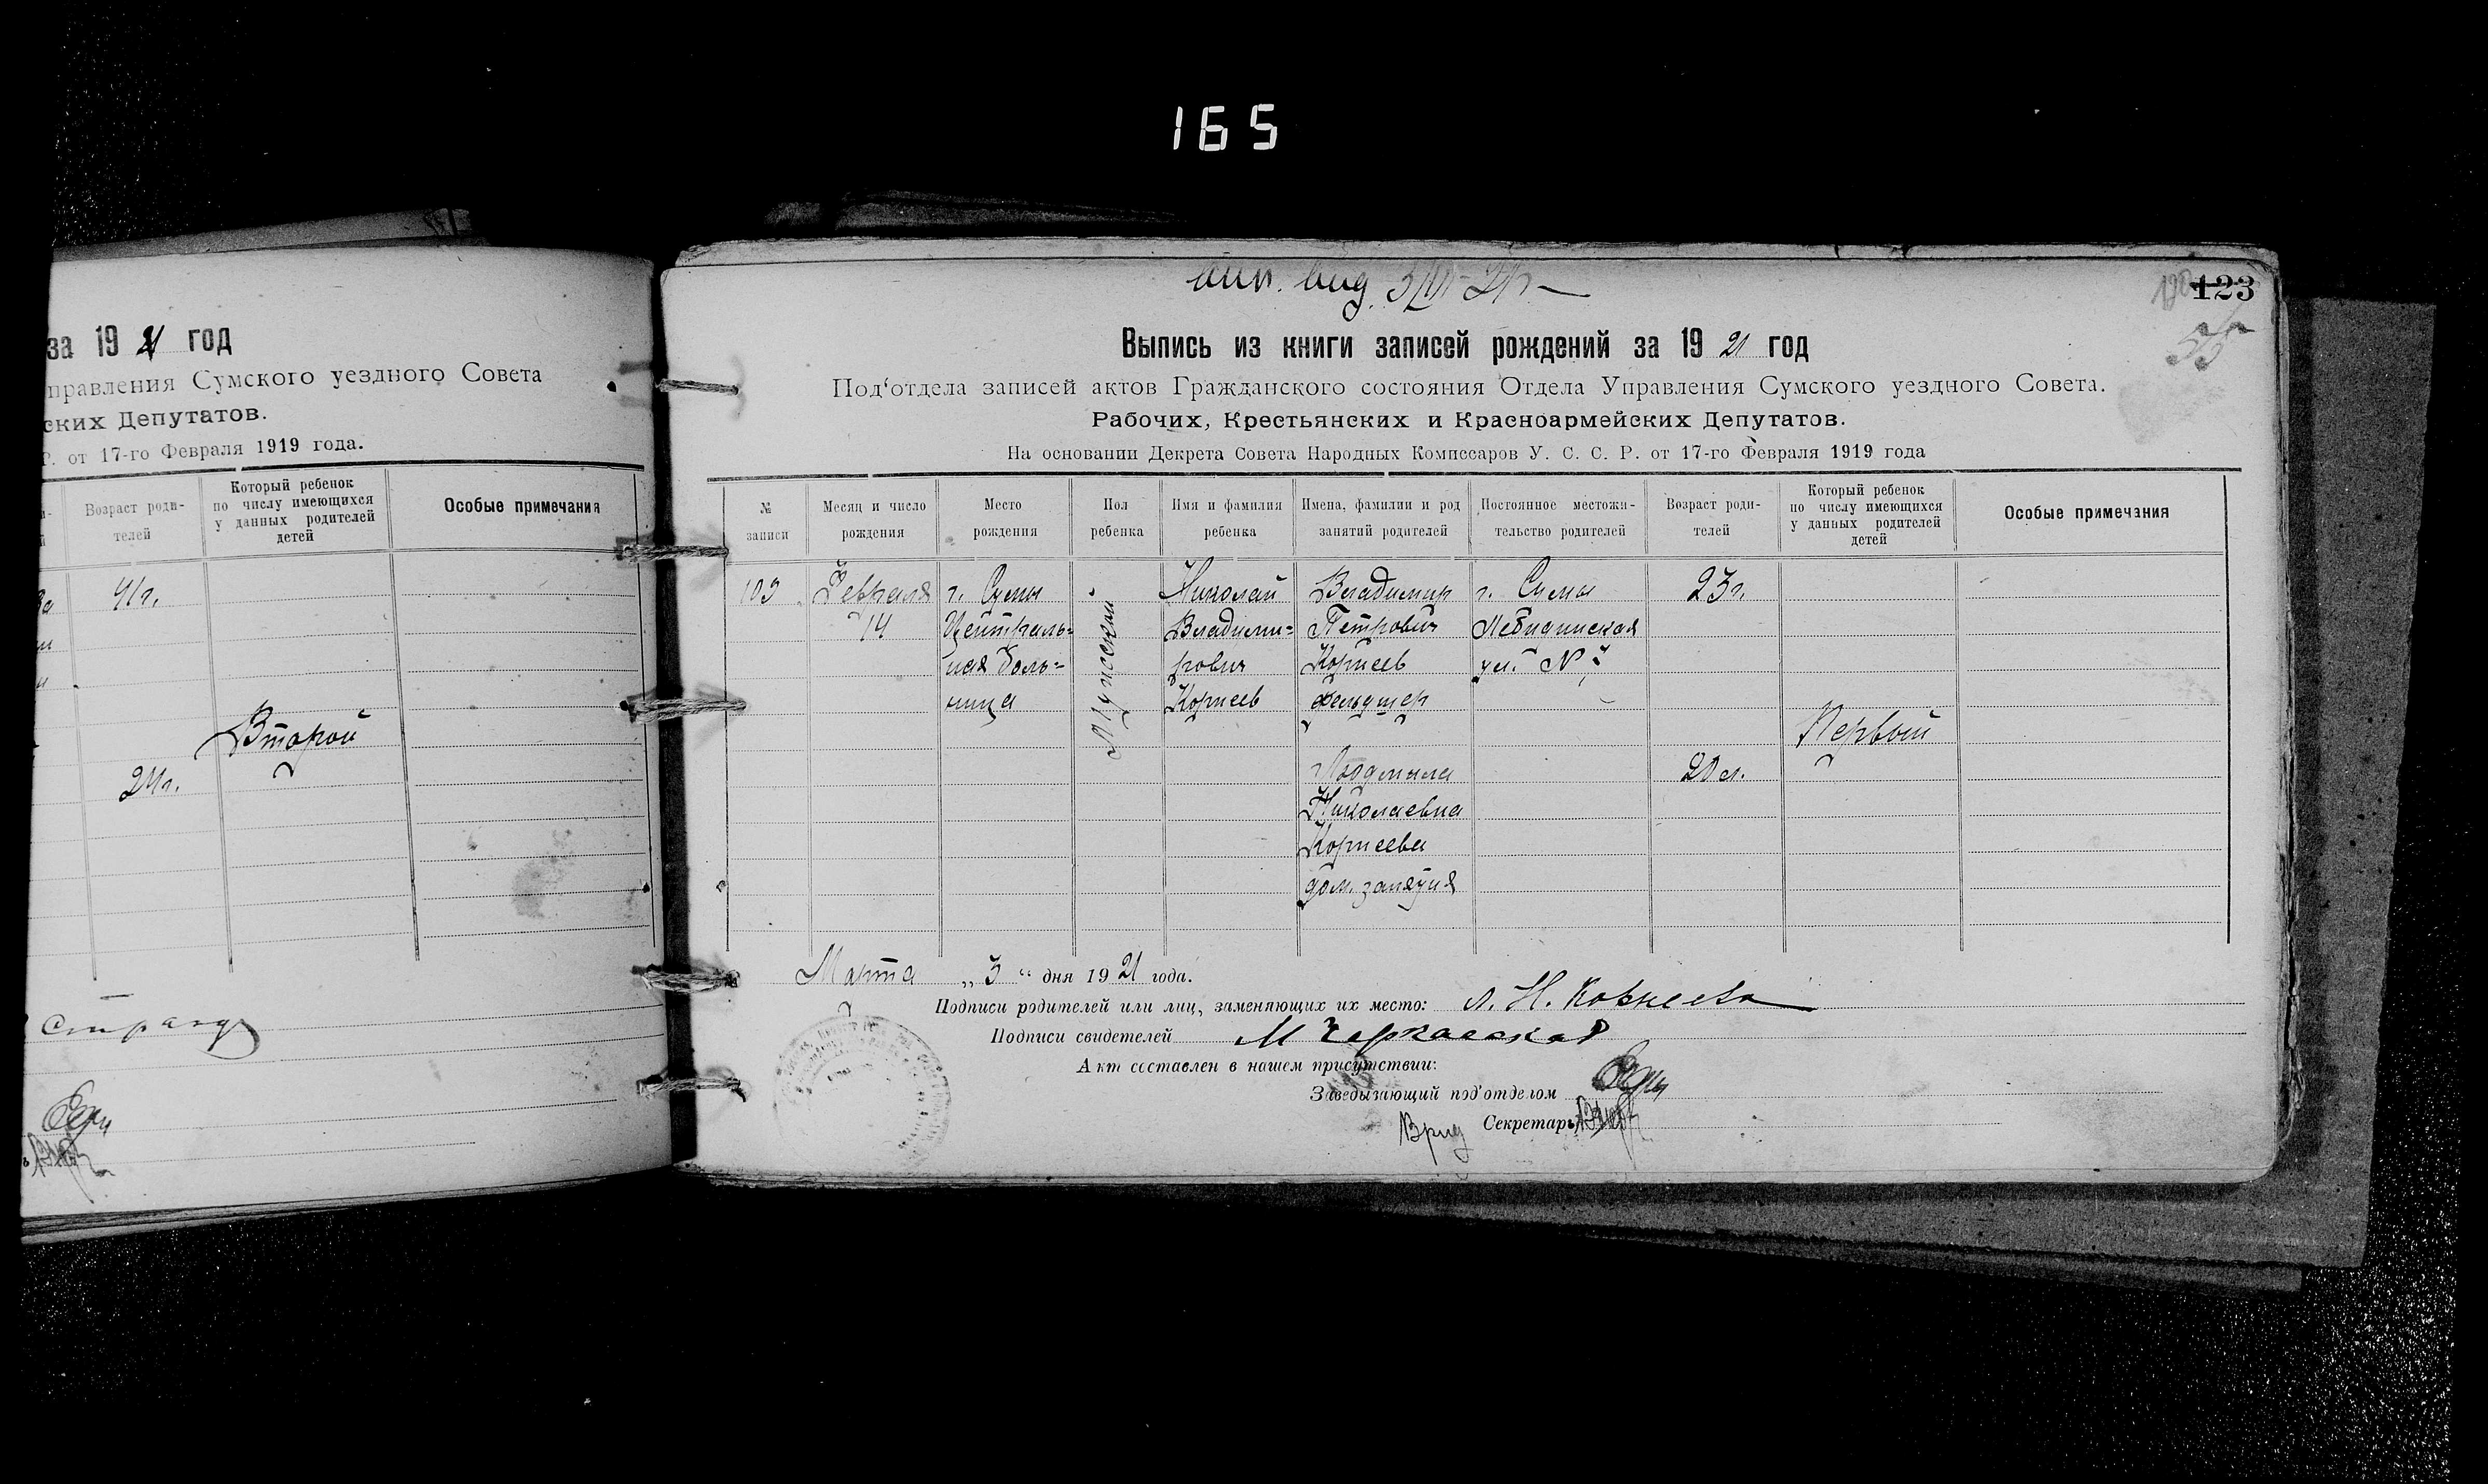 165
за 1921 год
правления Сумского уездного Совета
ских Депутатов.
Р. от 17-го Февраля 1919 года.
Возраст роди-
телей
Который ребенок
по числу имеющихся
у данных родителей
детей
Особые примечания
41г.
Второй
24г.
вид.
123
Выпись из книги записей рождений за 1921 год
Под'отдела записей актов Гражданского состояния Отдела Управления Сумского уездного Совета.
Рабочих, Крестьянских и Красноармейских Депутатов.
На основании Декрета Совета Народных Комиссаров У. С. С. Р. от 17-го Февраля 1919 года
№
записи
Месяц и число
рождения
Место
рождения
Пол
ребенка
Имя и фамилия
ребенка
Имена, фамилии и род
занятий родителей
Постоянное местожи-
тельство родителей
Возраст роди-
телей
Который ребенок
по числу имеющихся
у данных родителей
детей
Особые примечания
103
Февраля
14
г. Сумы
Централь=
ная боль=
ница
Мужеский
Николай
Владими=
рович
Корнеев
Владимир
Петрович
Корнеев
фельдшер
Людмила
Николаевна
Корнеева
дом. занятия
г. Сумы
Лебединская
ул. №
23г.
20 л.
Первый
Марта „3“ дня 1921 года.
Подписи родителей или лиц, заменяющих их место: Л. Н. Корнеева
Подписи свидетелей М Черкасская
Акт составлен в нашем присутствии:
Заведывающий под'отделом
Врид Секретарь